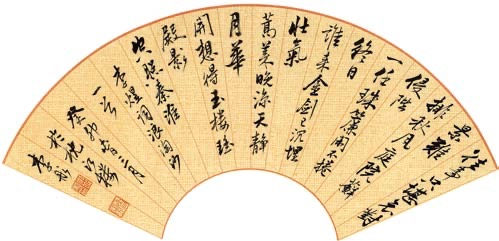 往事只堪哀對
景難
排秋月庭院蘚
侵階
一任珠簾閒不捲
終日
誰來金劍已沉埋
壯氣
蒿萊晚涼天靜
月華
開想得玉樓瑤
殿影
空照秦淮
李煜詞浪淘沙
一首
癸卯
於
李